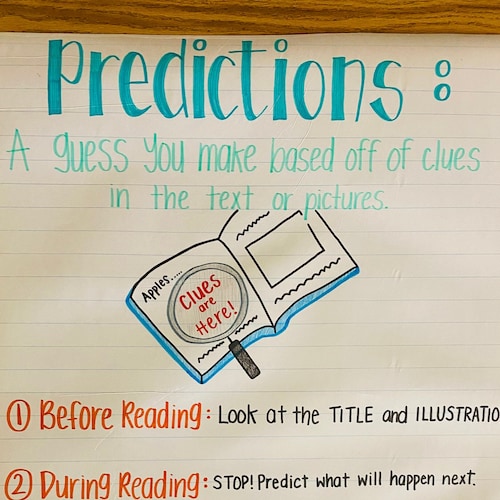 Predictions:
A guess you make based off of clues
in the text or pictures.
Apples.....
Clues
are
Here!
① Before Reading: Look at the TITLE and ILLUSTRATIO
② During Reading: STOP! Predict what will happen next.